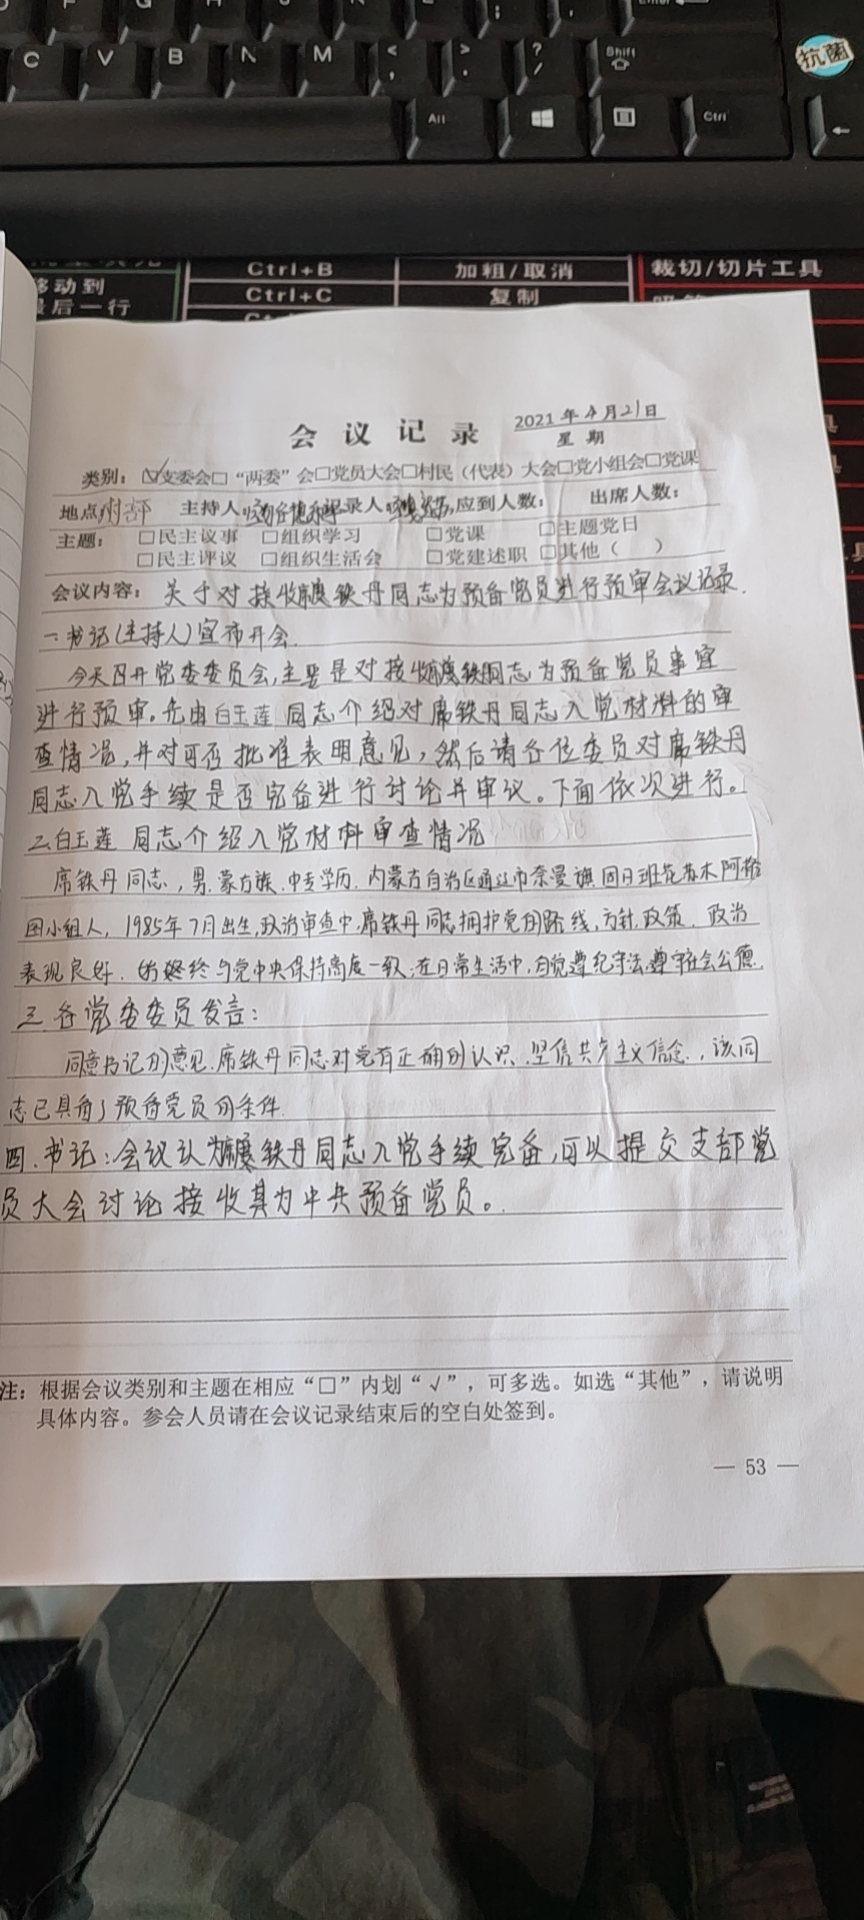 C V B N M < , > . ? / Shift
抗菌
Alt Ctrl
移动到 Ctrl+B 加粗/取消 裁切/切片工具
最后一行 Ctrl+C 复制
会议记录 2021年4月21日
星期
类别：☑支委会□“两委”会□党员大会□村民（代表）大会□党小组会□党课
地点 主持人 记录人 应到人数： 出席人数：
主题：□民主议事 □组织学习 □党课 □主题党日
□民主评议 □组织生活会 □党建述职 □其他（ ）
会议内容：关于对接收席铁丹同志为预备党员进行预审会议记录.
一.书记(主持人)宣布开会.
今天召开党委委员会,主要是对接收席铁丹同志为预备党员事宜
进行预审。先由白玉莲同志介绍对席铁丹同志入党材料的审
查情况,并对可否批准表明意见,然后请各位委员对席铁丹
同志入党手续是否完备进行讨论并审议。下面依次进行。
二.白玉莲 同志介绍入党材料审查情况
席铁丹同志,男.蒙古族.中专学历.内蒙古自治区通辽市奈曼旗固日班花苏木阿
小组人,1985年7月出生,政治审查中.席铁丹同志拥护党的路线,方针.政策.政治
表现良好.始终终与党中央保持高度一致;在日常生活中,自觉遵纪守法.遵守社会公德.
三.各党委委员发言:
同意书记的意见.席铁丹同志对党有正确的认识.坚信共产主义信念.,该同
志已具备了预备党员的条件.
四.书记:会议认为席铁丹同志入党手续完备,可以提交支部党
员大会讨论接收其为中共预备党员。
注：根据会议类别和主题在相应“□”内划“√”，可多选。如选“其他”，请说明
具体内容。参会人员请在会议记录结束后的空白处签到。
— 53 —